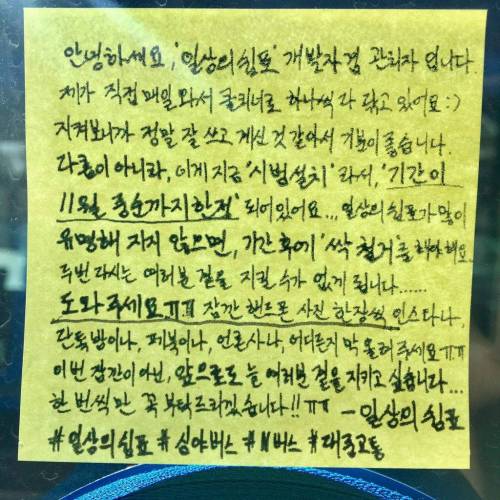 안녕하세요, '일상의쉼표' 개발자겸 관리자 입니다.
제가 직접 매일 와서 클리너로 하나씩 다 닦고 있어요 :)
지켜보니까 정말 잘 쓰고 계신 것 같아서 기분이 좋습니다.
다름이 아니라, 이게 지금 '시범설치' 라서, '기간이
11월 중순까지 한정' 되어있어요... 일상의 쉼표가 많이
유명해 지지 않으면, 기간 후에 '싹 철거'를 해야 해요
두번 다시는 여러분 곁을 지킬 수가 없게 됩니다......
도와주세요ㅠㅠ 잠깐 핸드폰 사진 한장씩 인스타나,
단톡방이나, 페북이나, 언론사나, 어디든지 막 올려 주세요ㅠㅠ
이번 잠깐이 아닌, 앞으로도 늘 여러분 곁을 지키고 싶습니다...
한 번씩만 꼭 부탁드리겠습니다!! ㅠㅠ - 일상의 쉼표
#일상의쉼표 #심야버스 #N버스 #대중교통